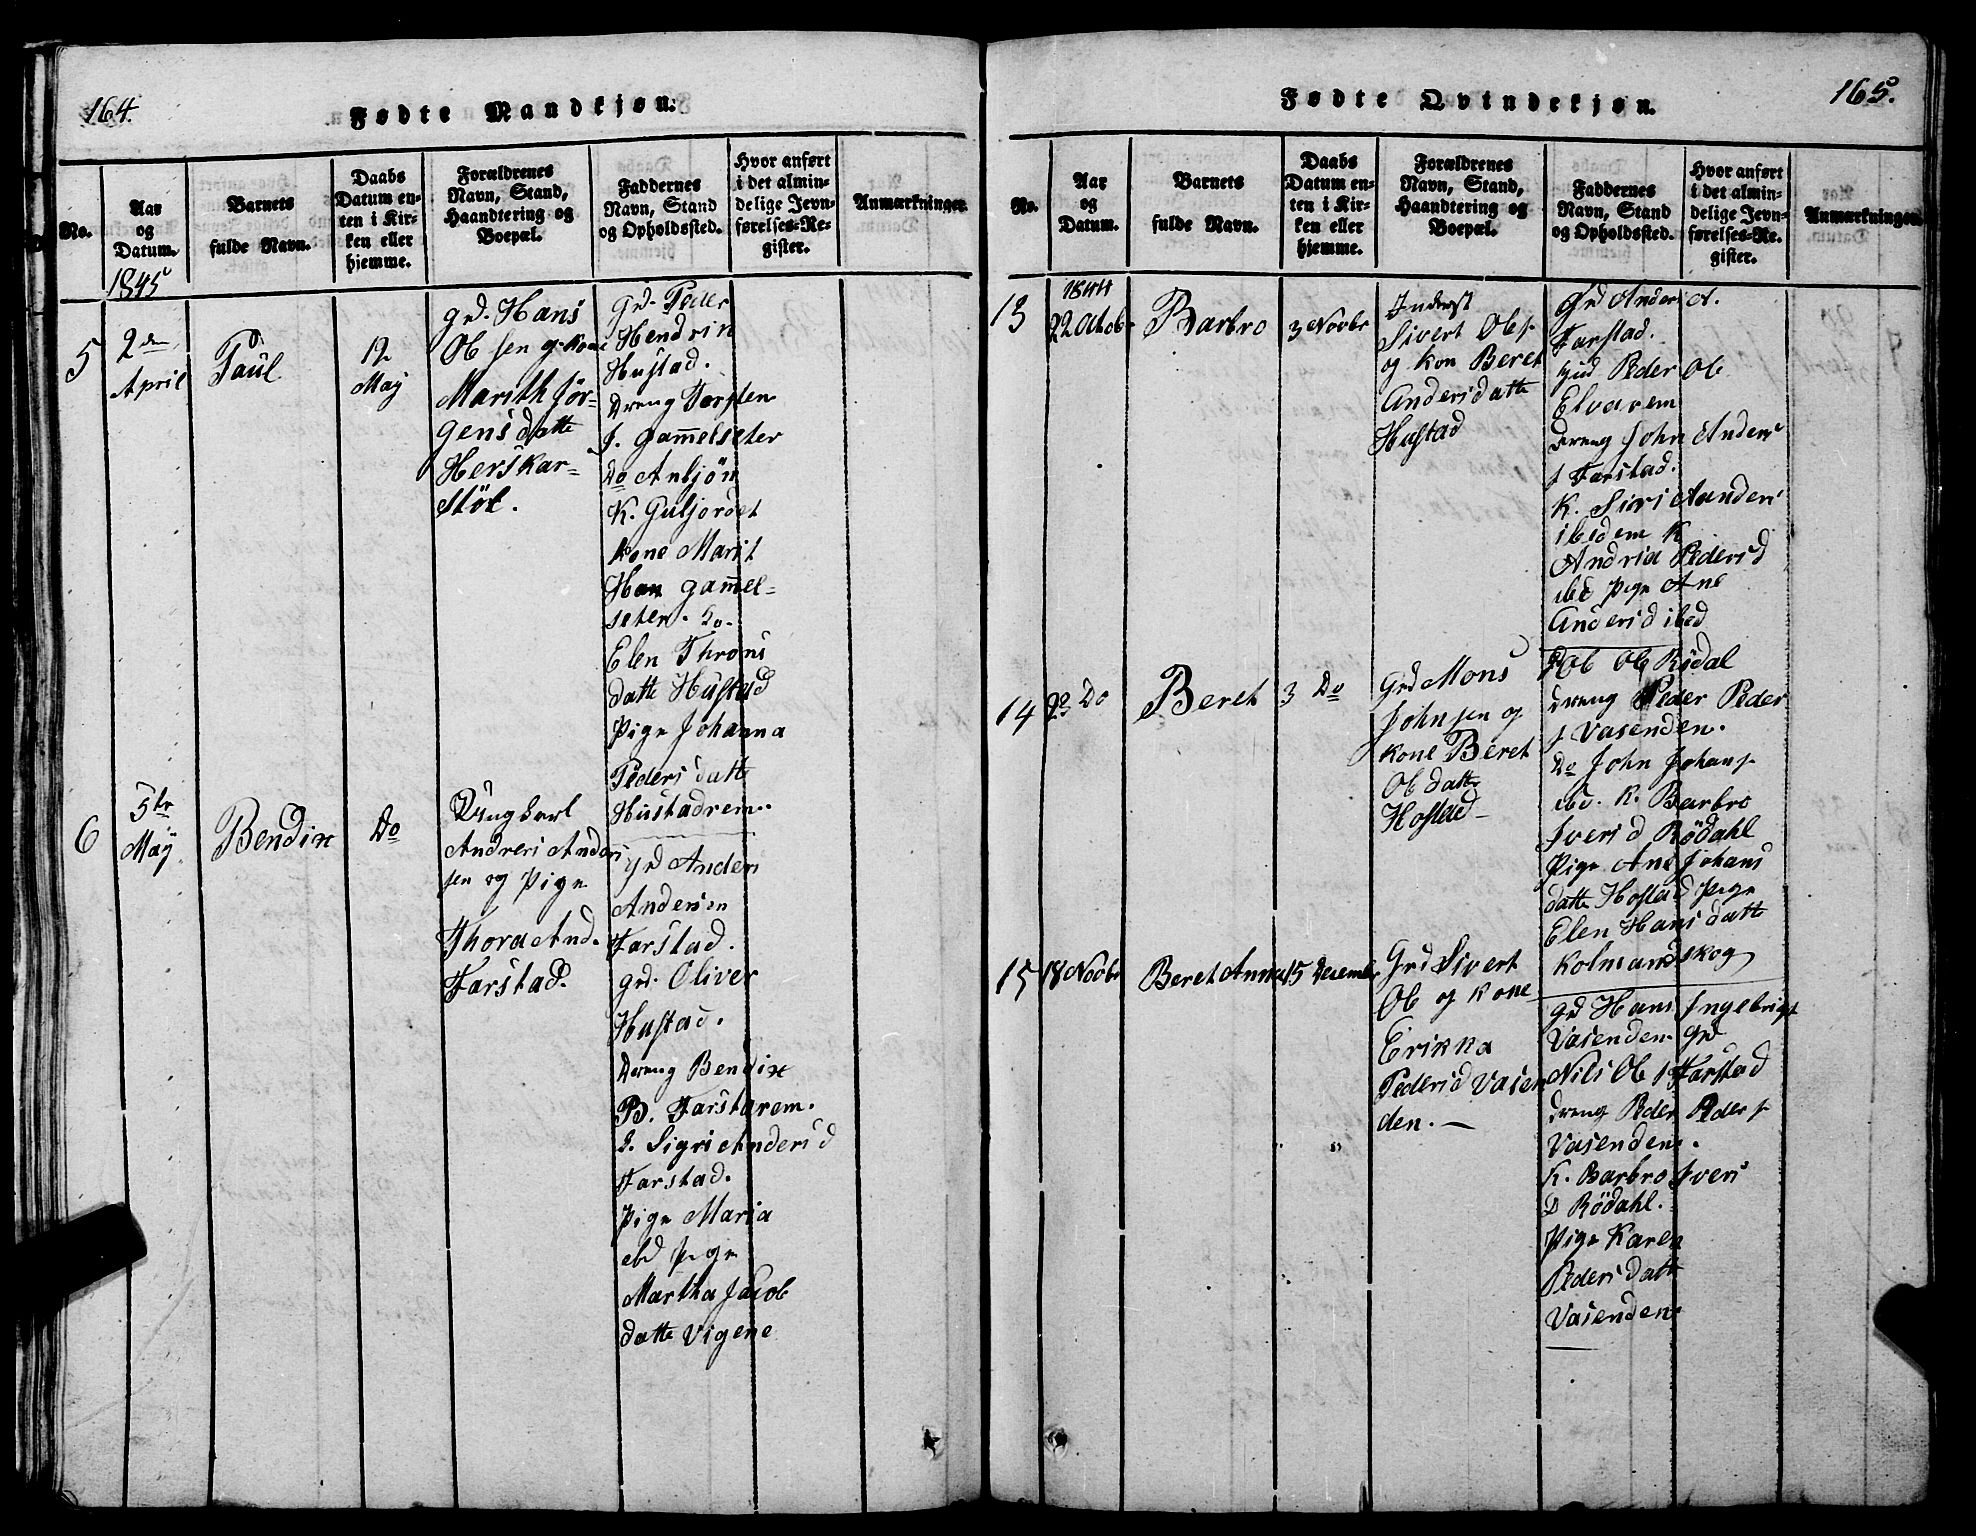 164.
Fødte Mandkjøn.
No.
Aar
og
Datum.
Barnets
fulde Navn.
Daabs
Datum en-
ten i Kir-
ken eller
hjemme.
Forældrenes
Navn, Stand,
Haandtering og
Boepæl.
Faddernes
Navn, Stand
og Opholdssted.
Hvor anført
i det almin-
delige Jevn-
førelses-Re-
gister.
Anmærkninger.
1845
5
2den
April
Paul
12
Maij
grd. Hans
Ols sen og kone
Marith Jör-
gensdatte
Herskar-
stöl.
grd. Peder
Hendrik
Hustad.
Dreng Torsten
J. Gam̄elseter
Do Anbjön
K. Guljordet
kone Marit
Han gam̄el-
seter. Do.
Elen Throns
datte Hustad
Pige Johanna
Peders datte
Hustadrem.
6
5te
Maij
Bendix
Do
Ungkarl
Andreas Anders
sen og Pige
Thora And.
Farstad.
grd Anders
Andersen
Farstad.
grd. Oliver
Hustad.
Dreng Bendix
B. Farstarem.
K. Sigri Andersd
Farstad.
Pige Maria
ibd Pige
Martha Jacob
datte Vigene
165.
Fødte Qvindekjøn.
No.
Aar
og
Datum.
Barnets
fulde Navn.
Daabs
Datum en-
ten i Kir-
ken eller
hjemme.
Forældrenes
Navn, Stand,
Haandtering og
Boepæl.
Faddernes
Navn, Stand
og Opholdssted.
Hvor anført
i det almin-
delige Jevn-
førelses-Re-
gister.
Anmærkninger.
1844
13
22 Octobr
Barbro
3 Novbr
Inderst
Sivert Ols
og kon Beret
Andersdatte
Hustad
Grd Anders A.
Farstad.
Peder Ols
Elvarem
dreng John Anders
s Farstad.
K. Siri Aanders
ibidem K
Andrea Pedersd
ibd Pige Ane
Andersd ibed
14
23 Do
Beret
3 Do
Grd Mons
Johnsen og
kone Beret
Ols datte
Hostad
Ole Ols Rödal
dreng Peder Peder
s Vasenden.
Do John Johans
ibd. K. Barbro
Iversd Rödahl
Pige Ane Johans
datte Hostad Pige
Elen Hansdatte
Kolmanskog
15
18 Novbr
Beret Anna
15 Desember
Grd Sivert
Ols og kone
Erikka
Pedersd Vasen
den.
grd Hans Ingebrigt
Vasenden grd
Nils Ols s Farstad
dreng Peder Peders
Vasenden.
K. Barbro Ivers
D Rödahl.
Pige Karen
Peders datte
Vasenden